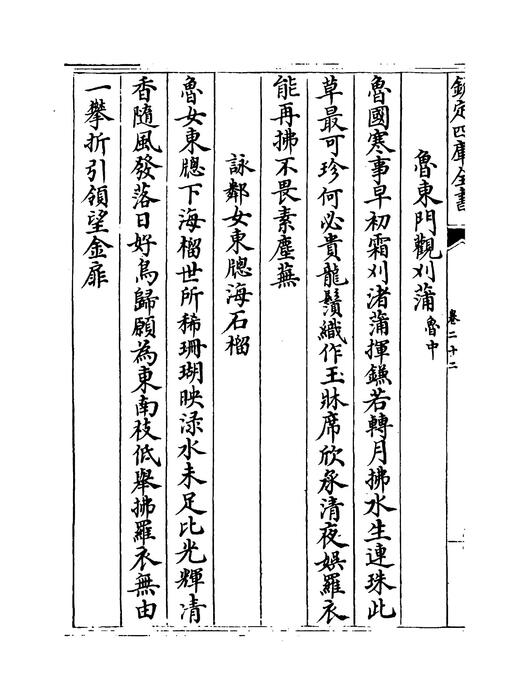 欽定四庫全書
卷二十二
魯東門觀刈蒲魯中
魯國寒事早初霜刈渚蒲揮鐮若轉月拂水生連珠此
草最可珍何必貴龍鬚織作玉牀席欣承清夜娛羅衣
能再拂不畏素塵蕪
詠鄰女東牕海石榴
魯女東牕下海榴世所稀珊瑚映渌水未足比光輝清
香隨風發落日好鳥歸願為東南枝低舉拂羅衣無由
一攀折引領望金扉